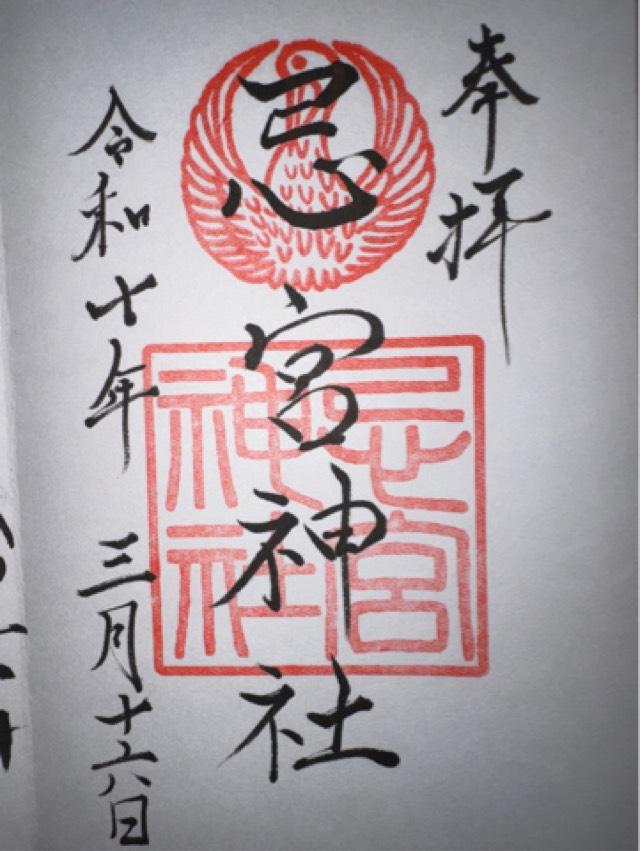 奉拝
忌宮神社
令和七年 三月十六日
忌宮
神社